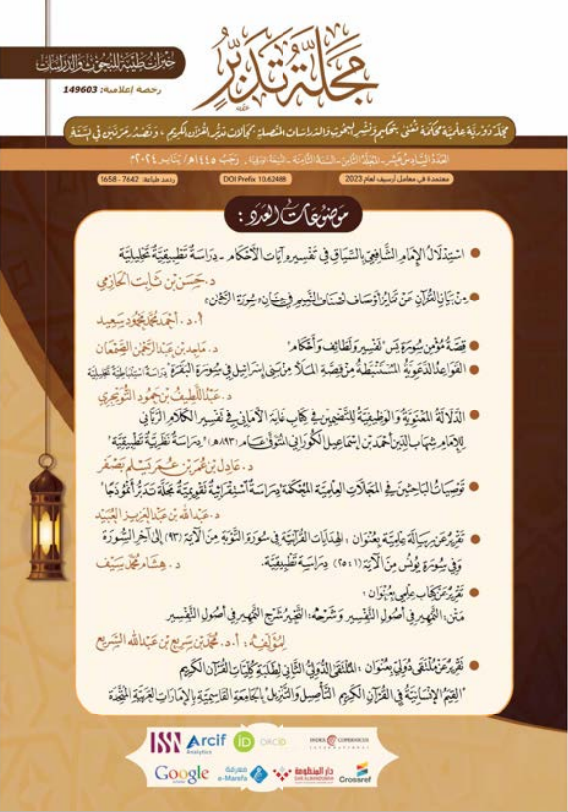 خبرات طيبة للبحوث والدراسات
رخصة إعلامية: 149603
مجلة تدبر
مجلة دورية علمية محكمة تعنى بتحكيم ونشر البحوث والدراسات المتصلة بمجالات تدبر القرآن الكريم ، وتصدر مرتين في السنة
العدد السادس عشر - المجلد الثامن - السنة الثامنة - رجب ١٤٤٥هـ / يناير ٢٠٢٤م
معتمدة في معامل أرسيف لعام 2023
DOI Prefix 10.62488
ردمد طباعة: 7642 - 1658
موضوعات العدد :
استدلال الإمام الشافعي بالسياق في تفسيره آيات الأحكام - دراسة تطبيقية تحليلية
د. حسن بن ثابت الحازمي
من بيان القرآن عن تمايز أوصاف أصناف النعيم في جنان «سورة الرحمن»
أ.د. أحمد محمد محمود سعيد
قصة مؤمن سورة يس "تفسير ولطائف وأحكام"
د. ماجد بن عبدالرحمن الصمعان
القواعد الدعوية المستنبطة من قصة الملأ من بني إسرائيل في سورة البقرة "دراسة استنباطية تحليلية"
د. عبداللطيف بن حمود التويجري
الدلالة المعنوية والوظيفية للتضمين في كتاب غاية الأماني في تفسير الكلام الرباني
للإمام شهاب الدين أحمد بن إسماعيل الكوراني المتوفى عام (٨٩٣هـ) "دراسة نظرية تطبيقية"
د. عادل بن عمر بن عمر تسلم بصفر
توصيات الباحثين في المجلات العلمية المحكمة "دراسة استقرائية تقويمية مجلة تدبر أنموذجا"
د. عبدالله بن عبدالعزيز العبيد
تقرير عن رسالة علمية بعنوان : الهدايات القرآنية في سورة التوبة من الآية (٩٣) إلى آخر السورة
وفي سورة يونس من الآية (١ : ٢٥) دراسة تطبيقية.
د. هشام محمد سيف
تقرير عن كتاب علمي بعنوان :
متن: التمهير في أصول التفسير وشرحه: التحبير شرح التمهير في أصول التفسير
لمؤلفه : أ.د. محمد بن سريع بن عبدالله السريع
تقرير عن ملتقى دولي بعنوان : الملتقى الدولي الثاني لطلبة كليات القرآن الكريم
"القيم الإنسانية في القرآن الكريم التأصيل والتنزيل" بالجامعة القاسمية بالإمارات العربية المتحدة
ISSN
Arcif
Analytics
iD
ORCID
INDEX COPERNICUS
INTERNATIONAL
Google
معرفة
e-Marefa
دار المنظومة
DAR ALMANDUMAH
Crossref